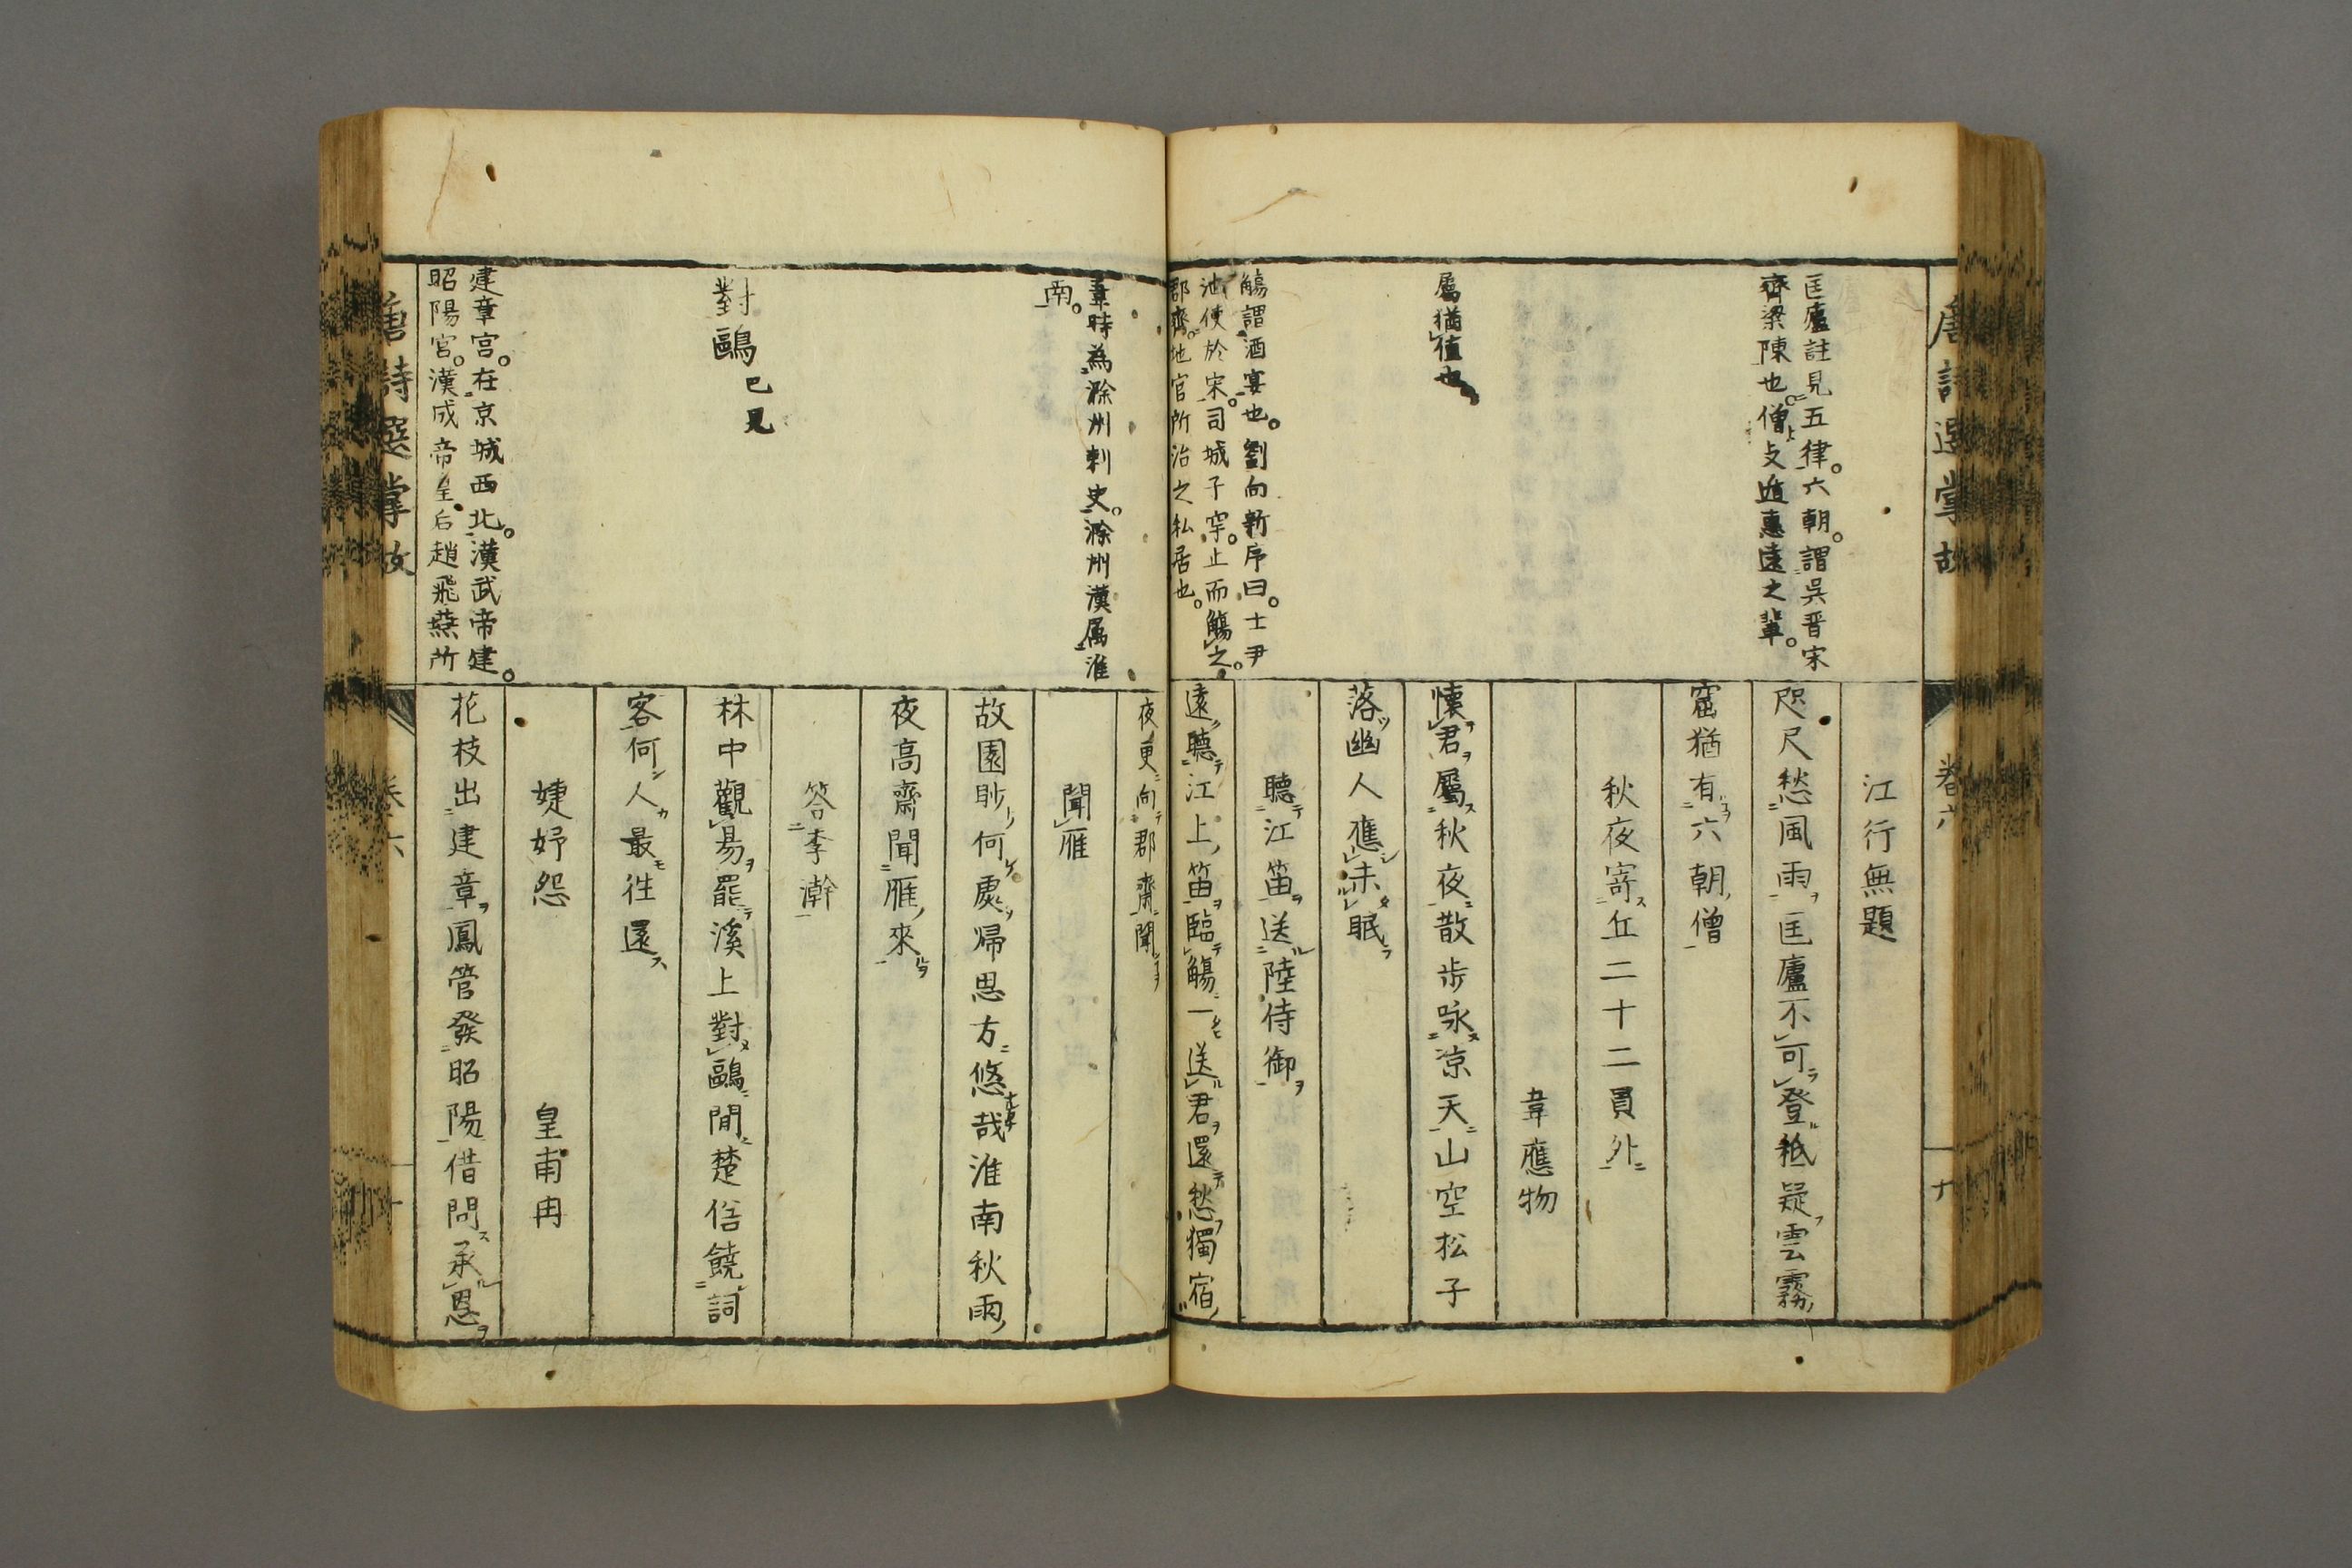 唐詩選掌故
卷六
九
匡廬註見五律。六朝。謂吳晋宋
齊梁陳也。僧支遁惠遠之輩。
屬猶值也
觴謂酒宴也。劉向新序曰。士尹
池使於宋。司城子罕。止而觴之。
郡齋。地官所治之私居也。
江行無題
咫尺愁風雨匡廬不可登秪疑雲霧
窟猶有六朝僧
秋夜寄丘二十二員外
韋應物
懷君屬秋夜散步咏凉天山空松子
落幽人應未眠
聽江笛送陸侍御
遠聽江上笛臨觴一送君還愁獨宿
韋時為滁州刺史。滁州漢屬淮
南。
對鷗已見
建章宮。在京城西北。漢武帝建。
昭陽宮。漢成帝皇后趙飛燕所
夜更向郡齋聞
聞雁
故園眇何處歸思方悠哉淮南秋雨
夜高齋聞雁來
答李澣
林中觀易罷溪上對鷗閒楚俗饒詞
客何人最徃還
婕妤怨
皇甫冉
花枝出建章鳳管發昭陽借問承恩
唐詩選掌故
卷六